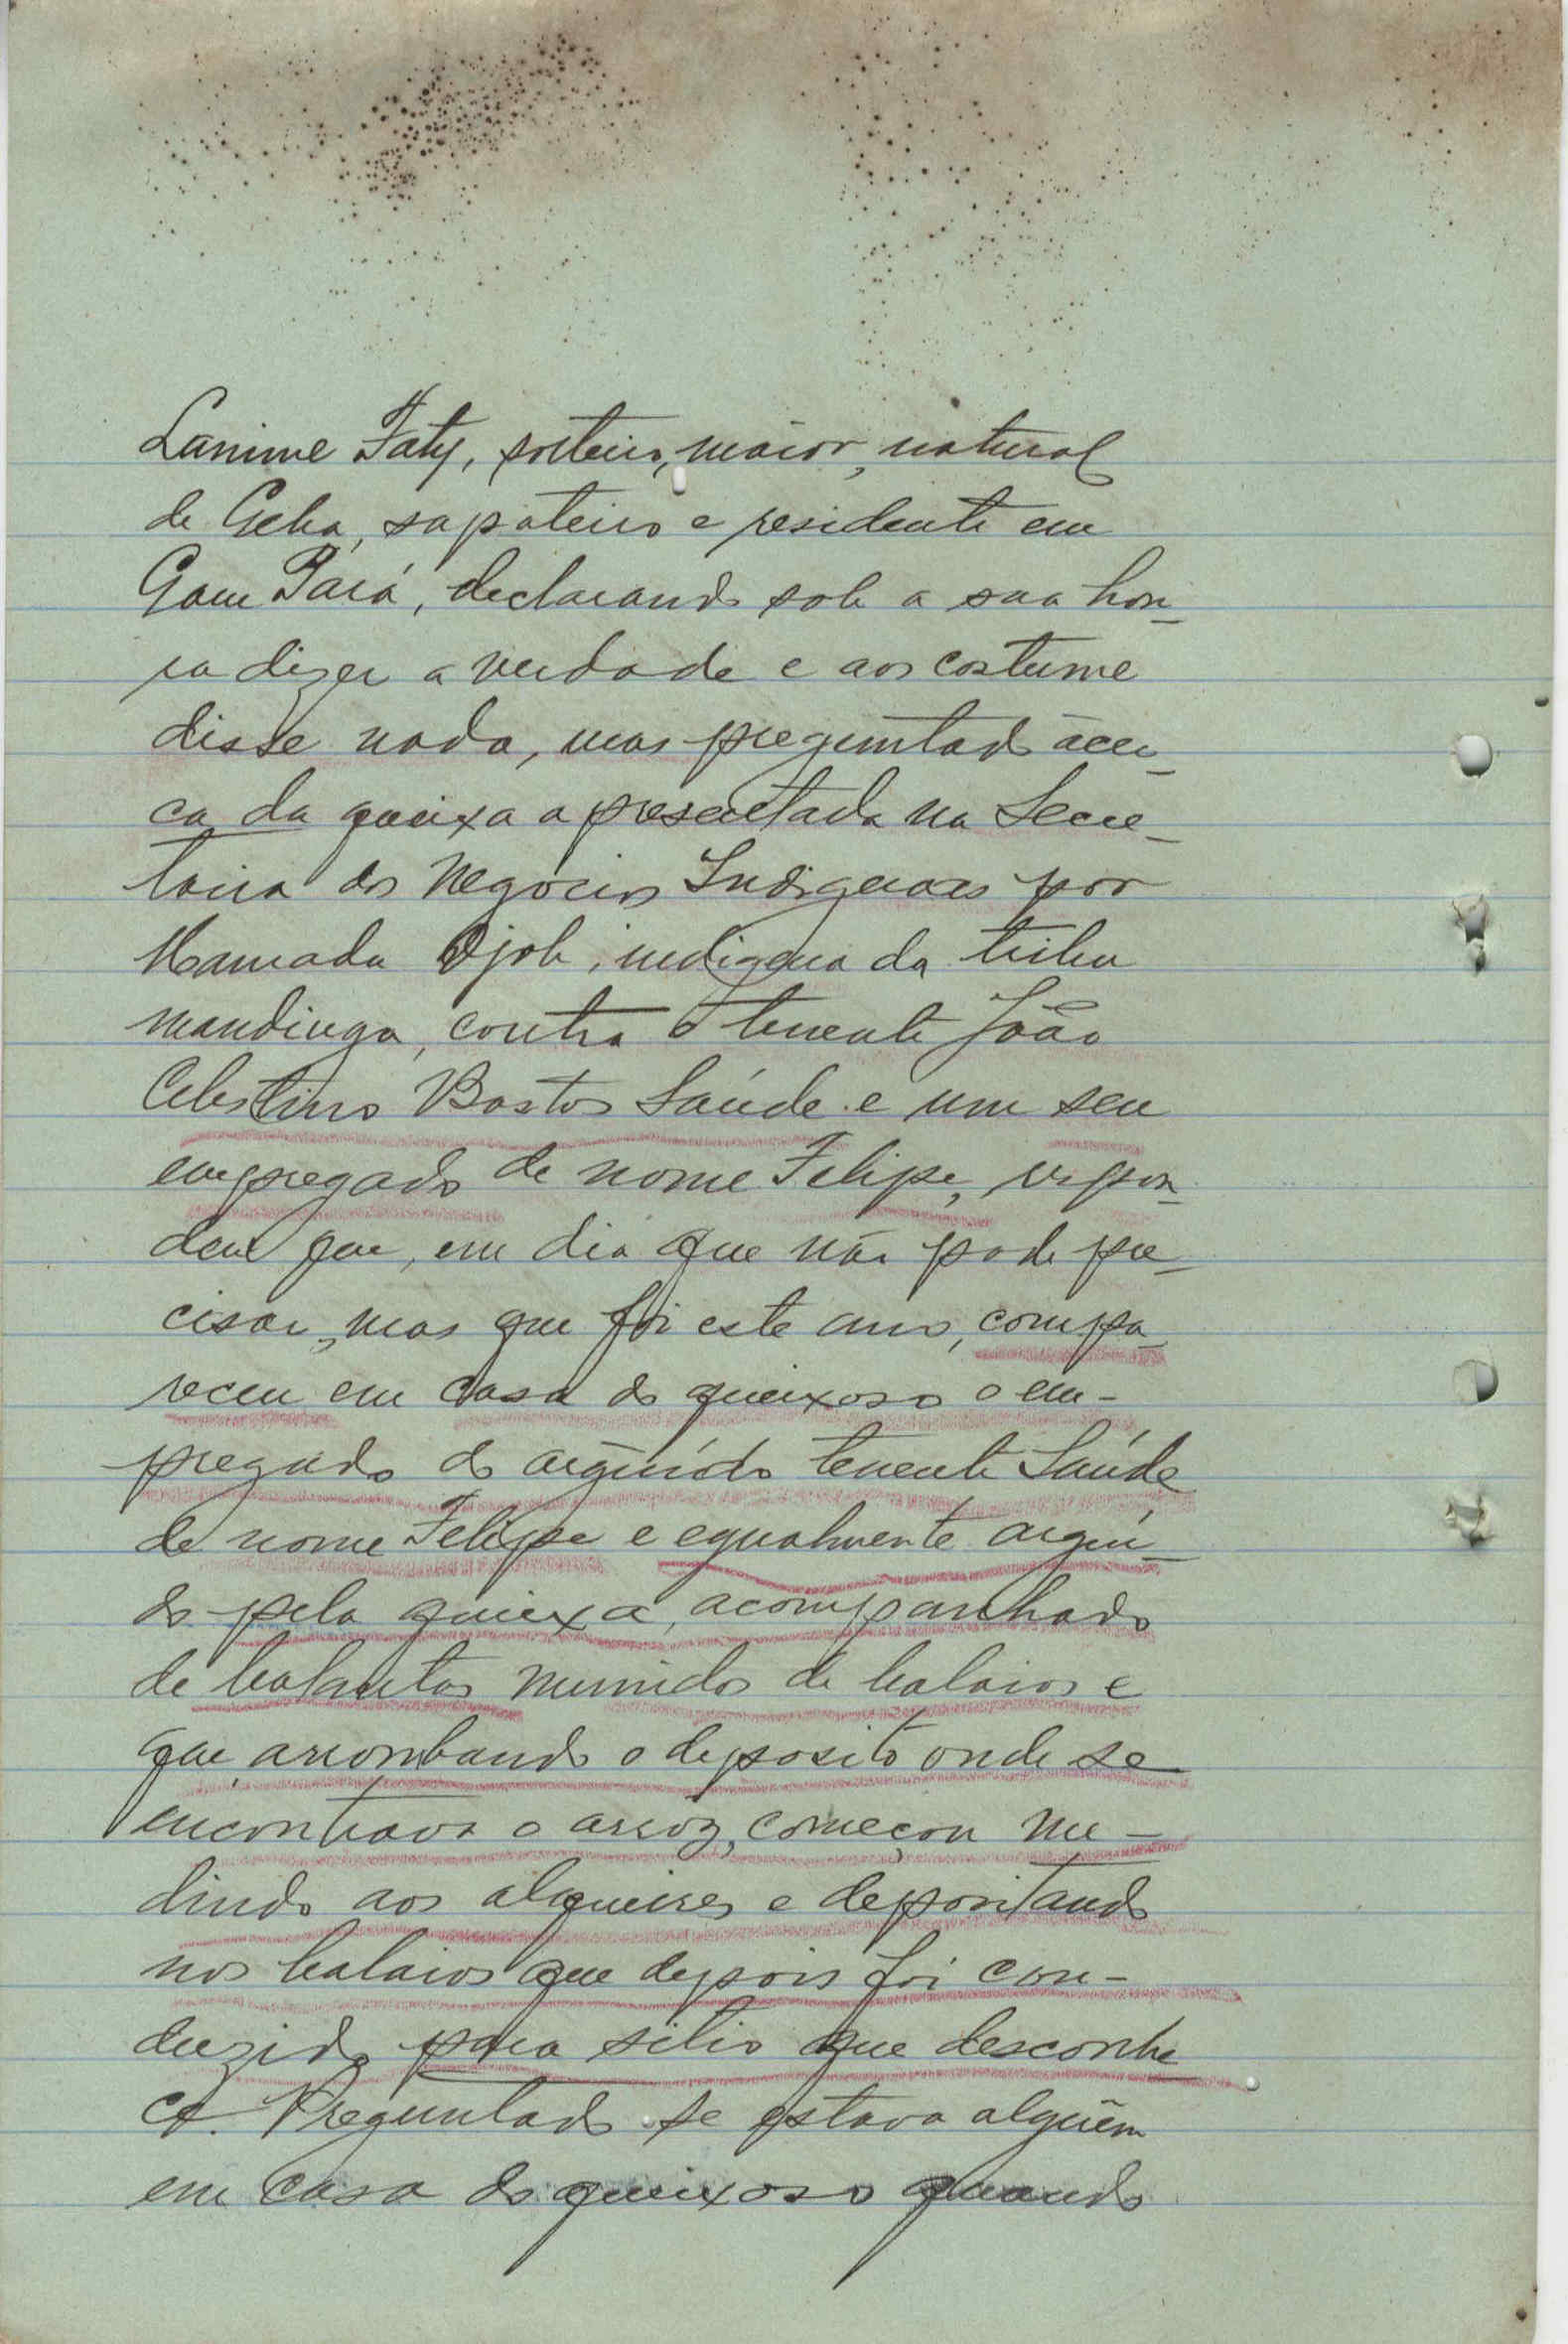 Lamine Faty, solteiro, maior, natural
de Geba, sapateiro e residente em
Gam Pará, declarando sob a sua hon-
ra dizer a verdade e aos costume
disse nada, mas preguntado ácer-
ca da queixa apresentada na Secre-
taria dos Negócios Indigenas por
Mamadu Djob, indigena da tribu
mandinga, contra o tenente João
Celestino Bastos Saúde e um seu
empregado de nome Felipe, respon-
deu que, em dia que não pode pre-
cisar, mas que foi este ano, compa-
receu em casa do queixoso o em-
pregado do argùido tenente Saúde
de nome Felipe e egualmente argui-
do pela queixa, acompanhado
de balantas munidos de balaios e
que arrombando o deposito onde se
encontrava o arroz, começou me-
dindo aos alqueires e depositando
nos balaios que depois foi con-
duzido para sitio que desconhe
ce. Preguntado se estava alguêm
em casa do queixoso quando